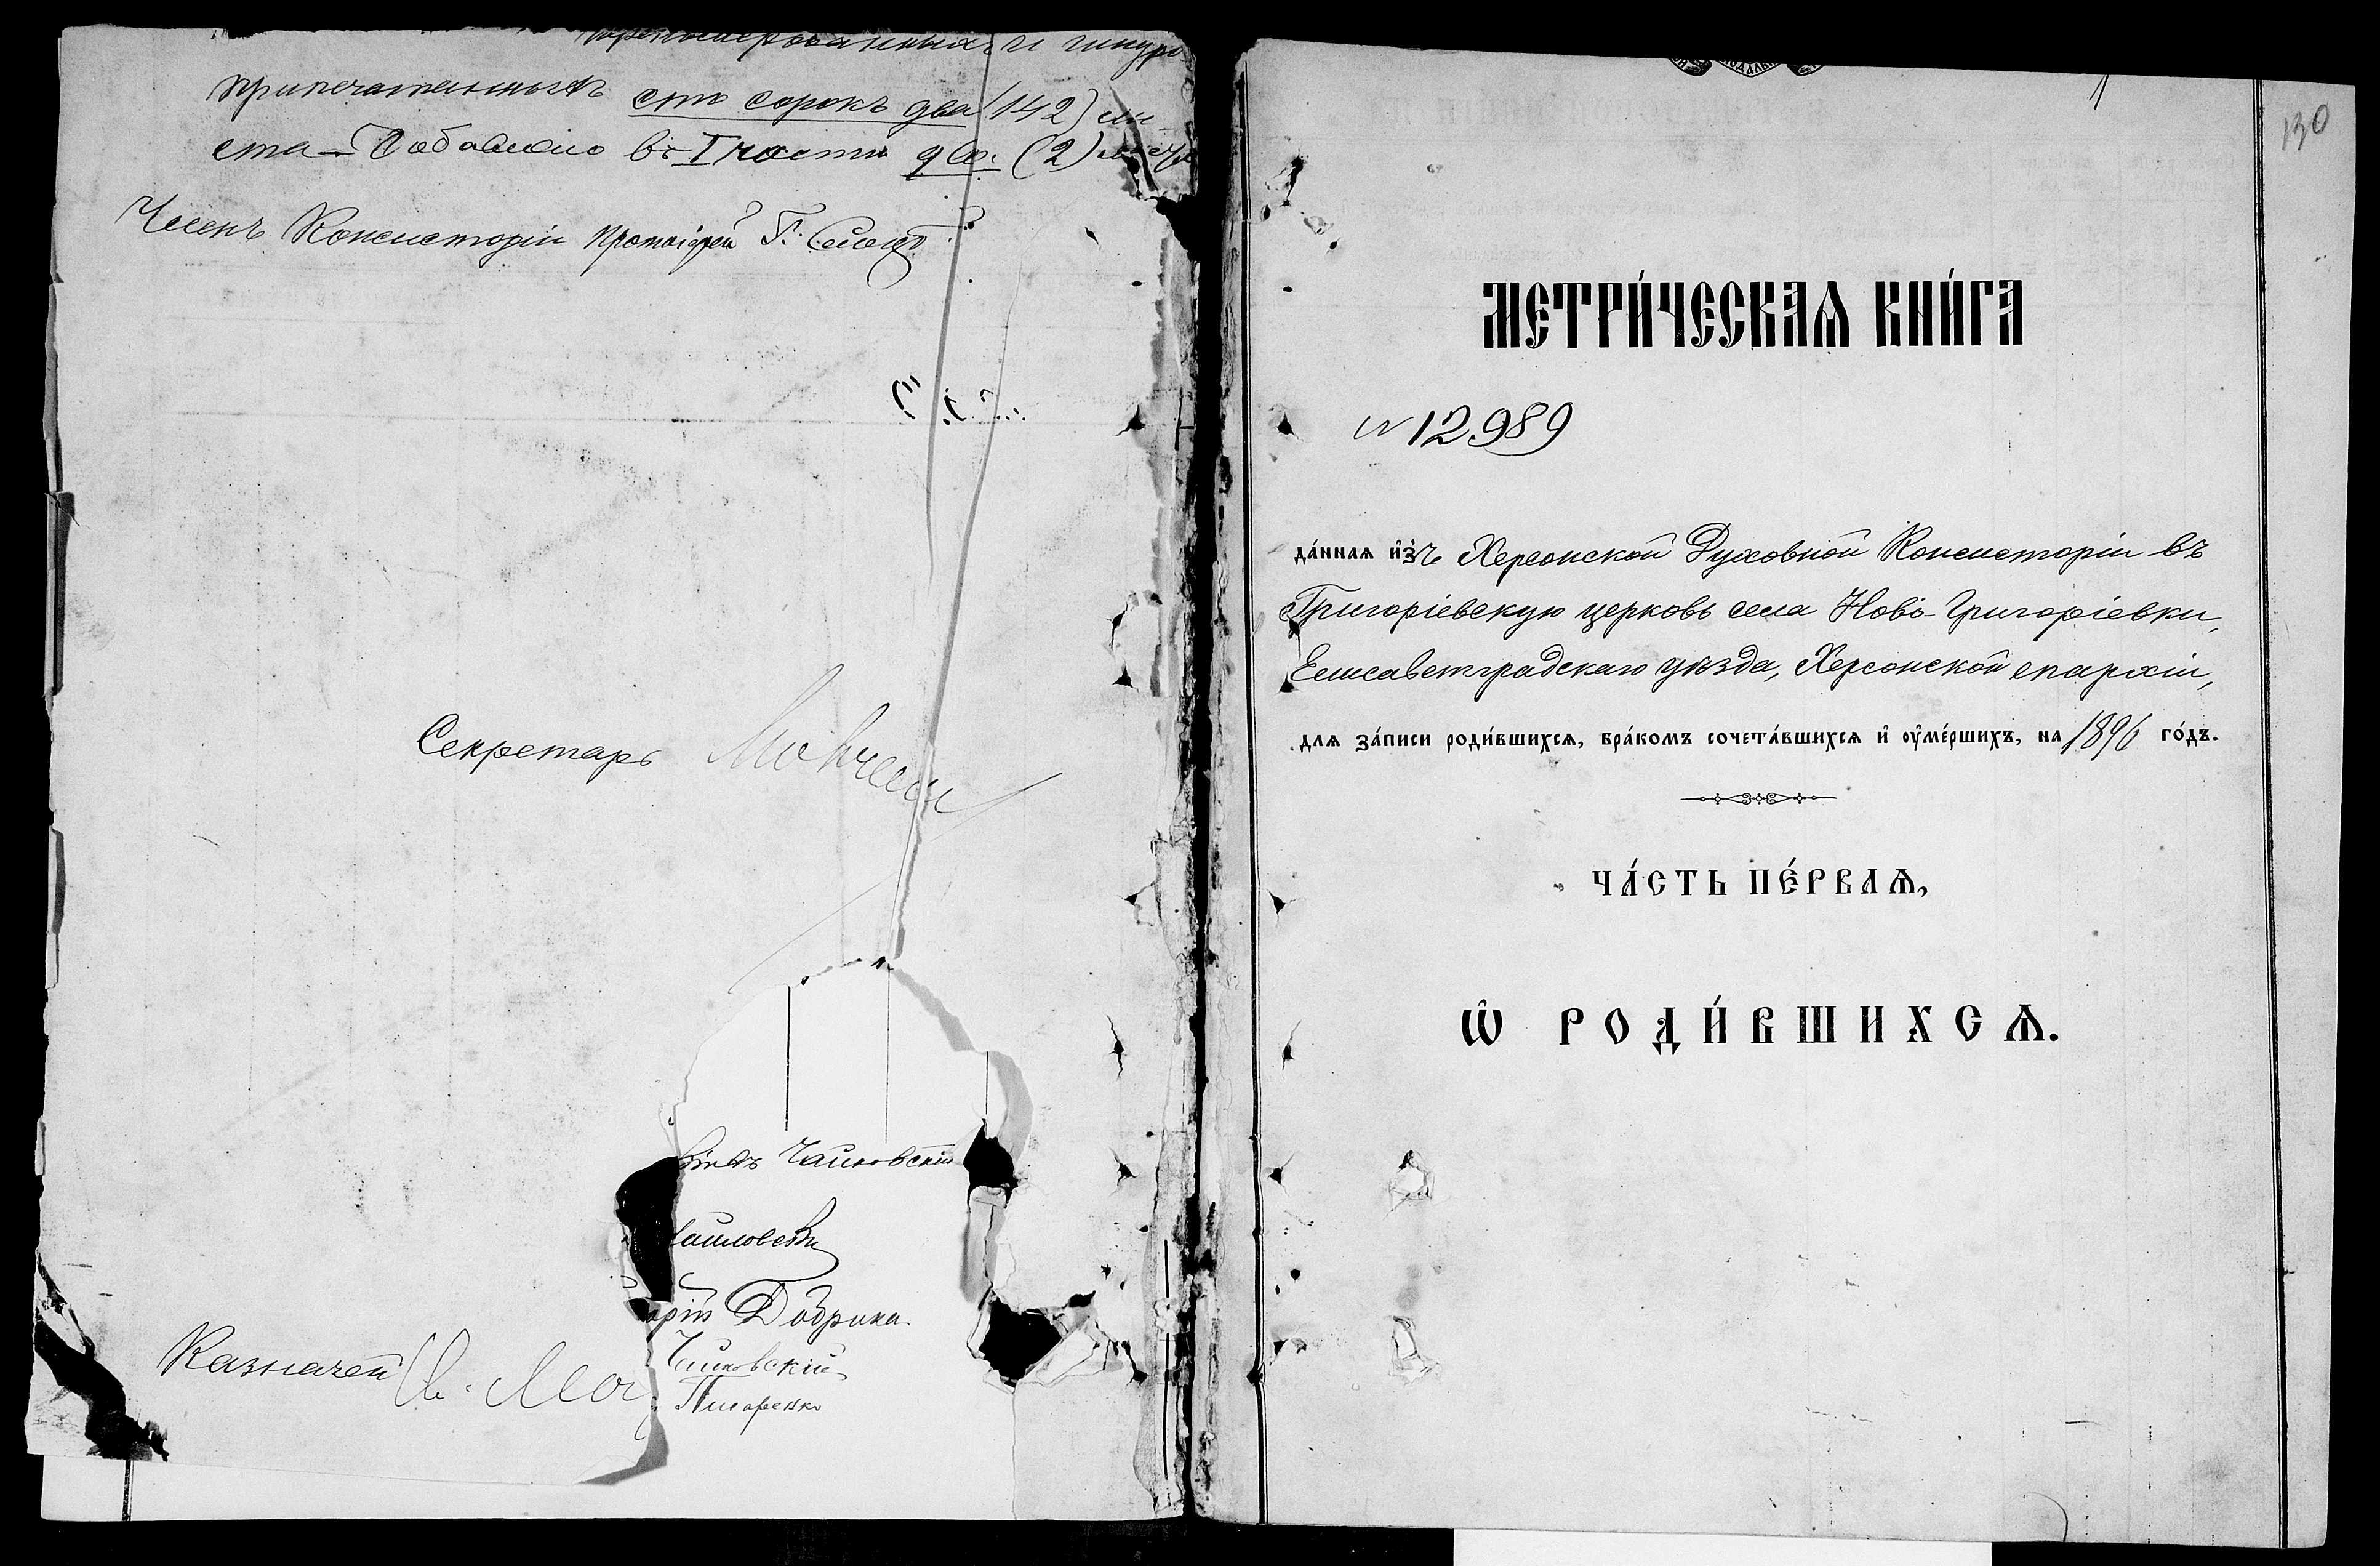 припечатанныхъ сто сорокъ два (142) ли-
ста. Добавлено въ I части два (2) листа
Членъ Консисторіи Протоіерей Г.
Секретарь
Чайковскій
Добрика.
Чайковскій
Писаренко
Казначей
130
МЕТРИ́ЧЕСКАѦ КНИ́ГА
N 12989
да́нная изъ Херсонской Духовной Консисторіи въ
Григоріевскую церковь села Ново-Григоріевки,
Елисаветградскаго уѣзда, Херсонской епархіи,
для за́писи роди́вшихсѧ, бра́комъ сочета́вшихсѧ и оуме́ршихъ, на 1896 го́дъ.
ЧА́СТЬ ПЕ́РВАѦ,
Ѡ РОДИ́ВШИХСѦ.